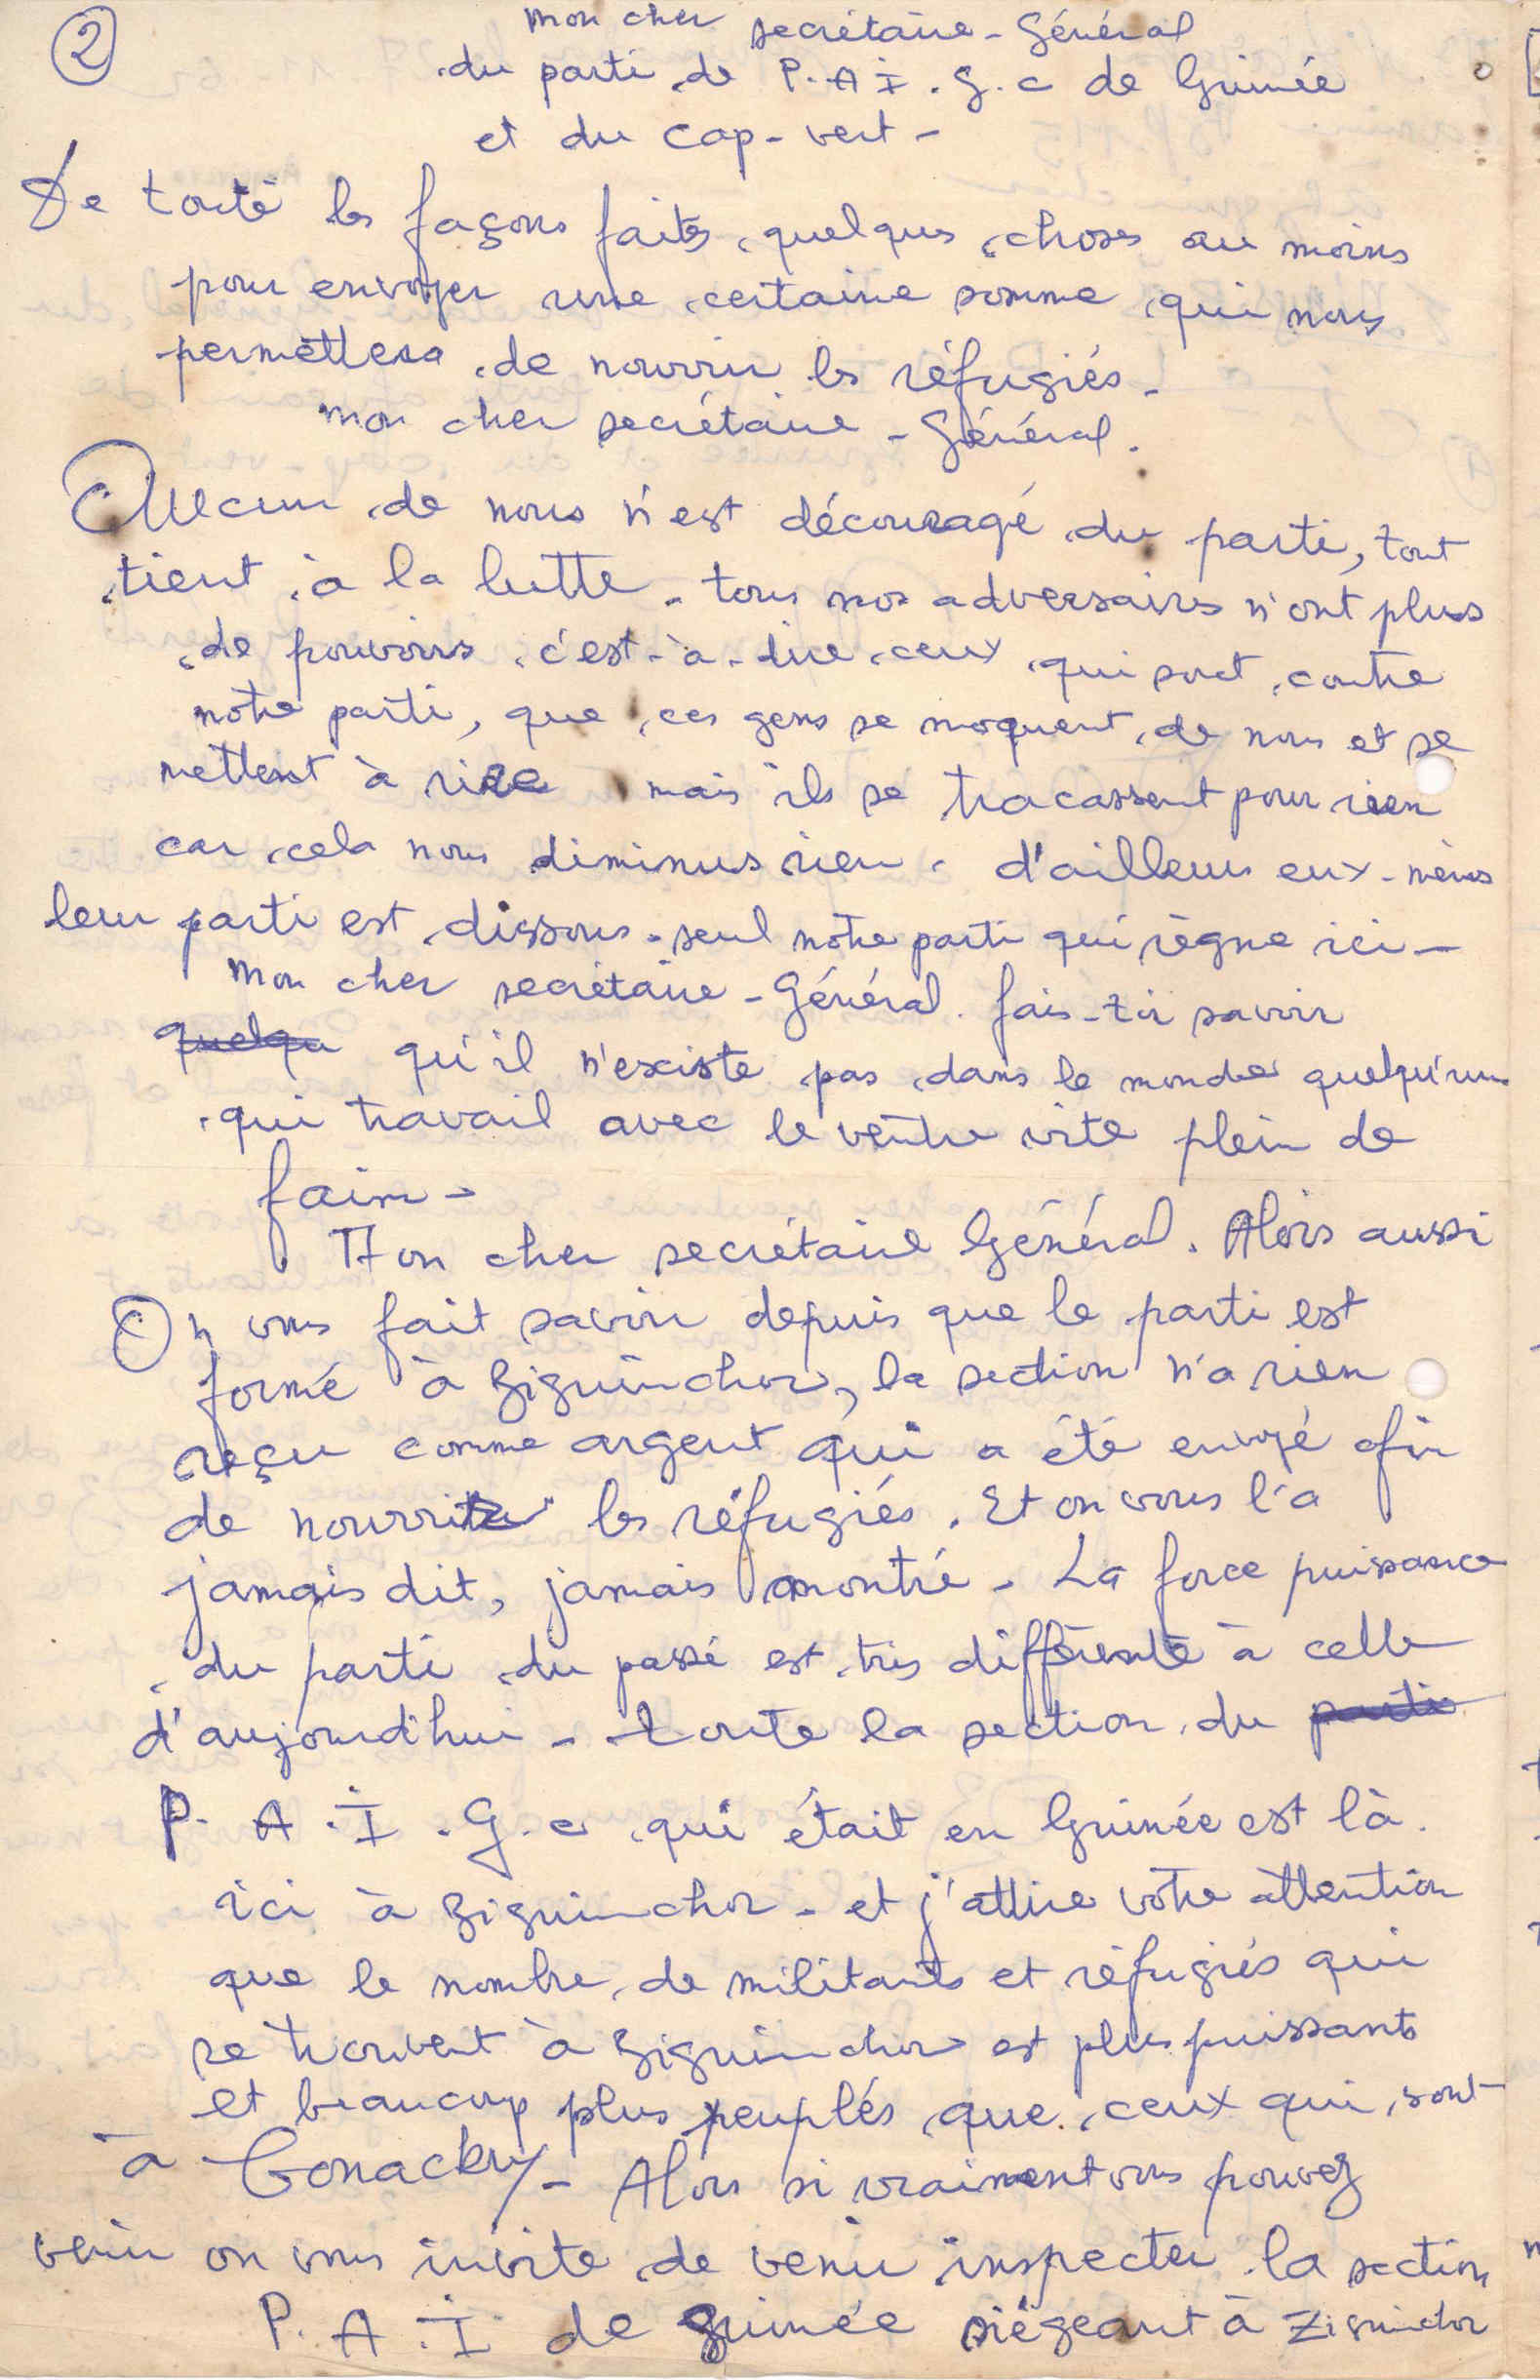 2
mon cher secrétaire - Général
du parti de P. A I. G. C de Guinée
et du Cap - vert -
De toute les façons faites quelques choses au moins
pour envoyer une certaine somme qui nous
permettera de nourrir les réfugiés -
mon cher secrétaire - Général.
Aucun de nous n'est découragé du parti, tout
tient à la lutte - tous nos adversaires n'ont plus
de pouvoirs c'est - à - dire ceux qui sont contre
notre parti, que ces gens se moquent de nous et se
mettent à rire mais ils se tracassent pour rien
car cela nous diminus rien. d'ailleurs eux - mêmes
leur parti est dissous - seul notre parti qui règne ici -
mon cher secrétaire - Général. fais - toi savoir
quelqu qu'il n'existe pas dans le monde quelqu'un
qui travail avec le ventre vite plein de
faim -
Mon cher secrétaire Général. Alors aussi
On vous fait savoir depuis que le parti est
formé à Ziguinchor, la section n'a rien
reçu comme argent qui a été envoyé afin
de nourrir les réfugiés. Et on vous l'a
jamais dit, jamais montré - La force puissance
du parti du passé est très différente à celle
d'aujourd'hui - toute la section du parti
P. A. I. G. C qui était en Guinée est là.
ici à Ziguinchor - et j'attire votre attention
que le nombre de militants et réfugiés qui
se trouvent à Ziguinchor est plus puissants
et beaucoup plus peuplés que ceux qui sont
à Conackry - Alors si vraiment vous pouvez
venir on vous invite de venir inspecter la section
P. A. I de Guinée siégeant à Ziguinchor